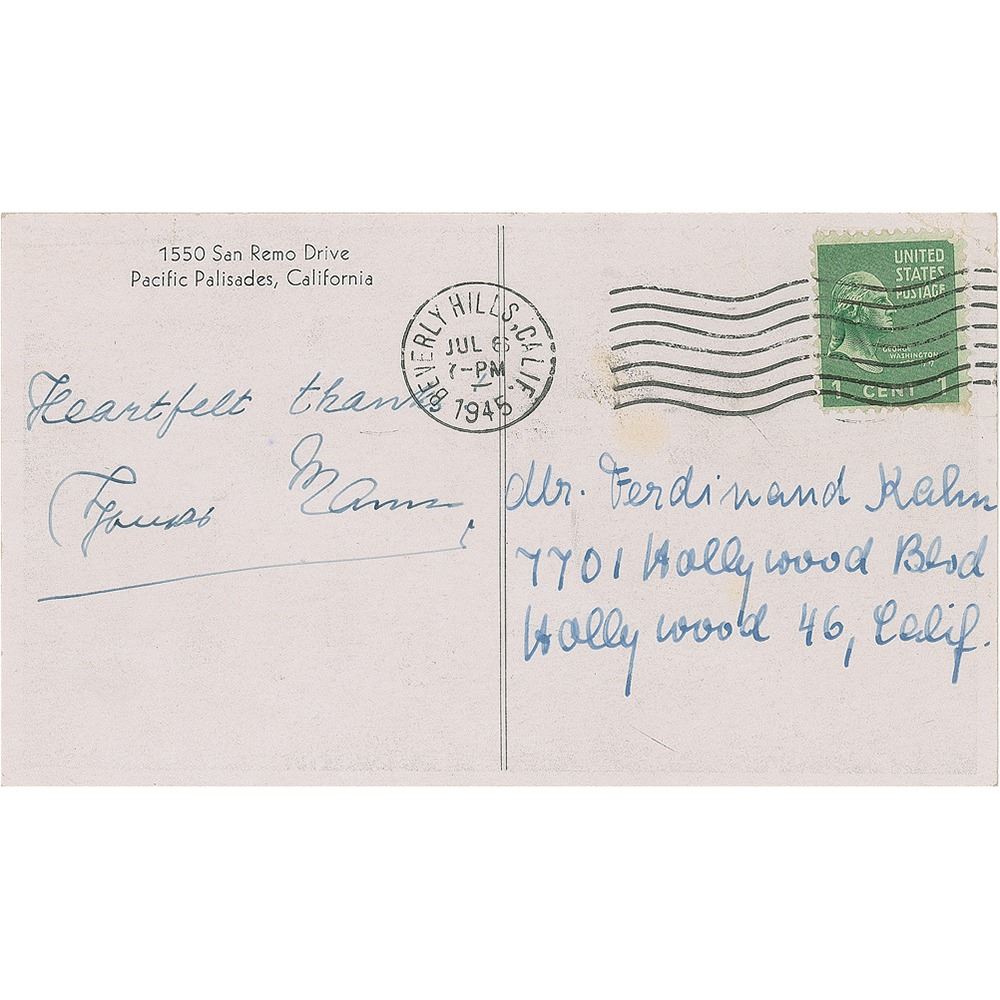 1550 San Remo Drive
Pacific Palisades, California
BEVERLY HILLS, CALIF.
JUL 6
7-PM
1945
UNITED
STATES
POSTAGE
GEORGE
WASHINGTON
1 CENT 1
Heartfelt thanks
Thomas Mann
Mr. Ferdinand Kahn
7701 Hollywood Blvd
Hollywood 46, Calif.